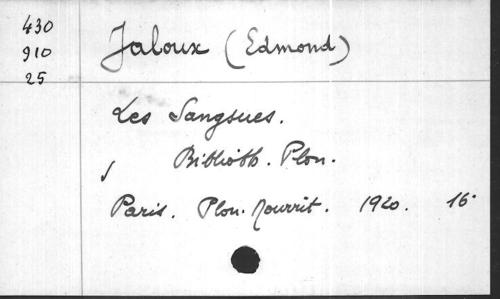 430
910
25
Jaloux (Edmond)
Les Sangsues.
Biblioth. Plon.
Paris. Plon-Nourrit. 1920. 16°